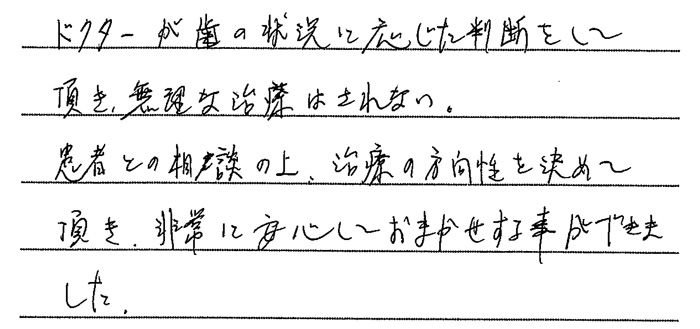 ドクターが歯の状況に応じた判断をして
頂き、無理な治療はされない。
患者との相談の上、治療の方向性を決めて
頂き、非常に安心しておまかせする事ができま
した。